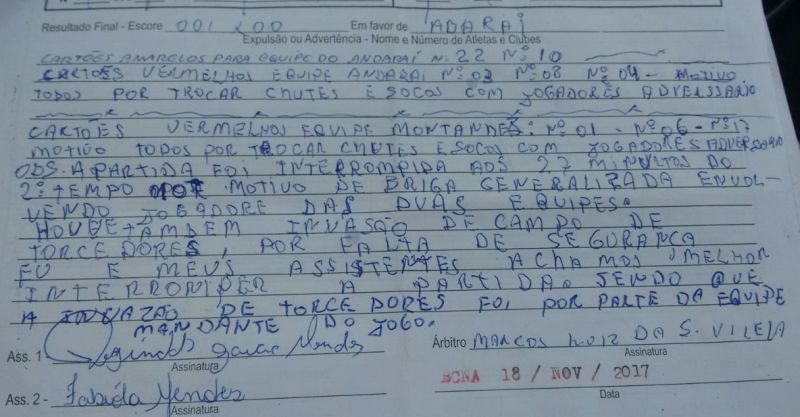 Resultado Final - Escore 001 x 00 Em favor de
Expulsão ou Advertência - Nome e Número de Atletas e Clubes
CARTÕES AMARELOS PARA EQUIPE DO ANDARAÍ Nº 22 Nº 10
CARTÕES VERMELHOS EQUIPE ANDARAI Nº 03 Nº 08 Nº 04 - MOTIVO
TODOS POR TROCAR CHUTES E SOCOS COM JOGADORES ADVERSSARIO
CARTOES VERMELHOS EQUIPE Nº 01 - Nº 06 - Nº 17
MOTIVO TODOS POR TROCAR CHUTES E SOCOS COM JOGADORES ADVERSARIO
OBS. A PARTIDA FOI INTERROMPIDA AOS 27 MINUTOS DO
2º TEMPO POR MOTIVO DE BRIGA GENERALIZADA ENVOL-
VENDO JOGADORE DAS DUAS EQUIPES.
HOUVE TAMBEM INVASÃO DE CAMPO DE
TORCEDORES, POR FALTA DE SEGURANCA
EU E MEUS ASSISTENTES ACHAMOS MELHOR
INTERROMPER A PARTIDA. SENDO QUE
A INVAZÃO DE TORCEDORES FOI POR PARTE DA EQUIPE
MANDANTE DO JOGO.
Ass. 1 Mendes
Assinatura
Árbitro MARCOS LUIZ DA S. VILELA
Assinatura
Ass. 2 - Fabíola Mendes
Assinatura
18 / NOV / 2017
Data